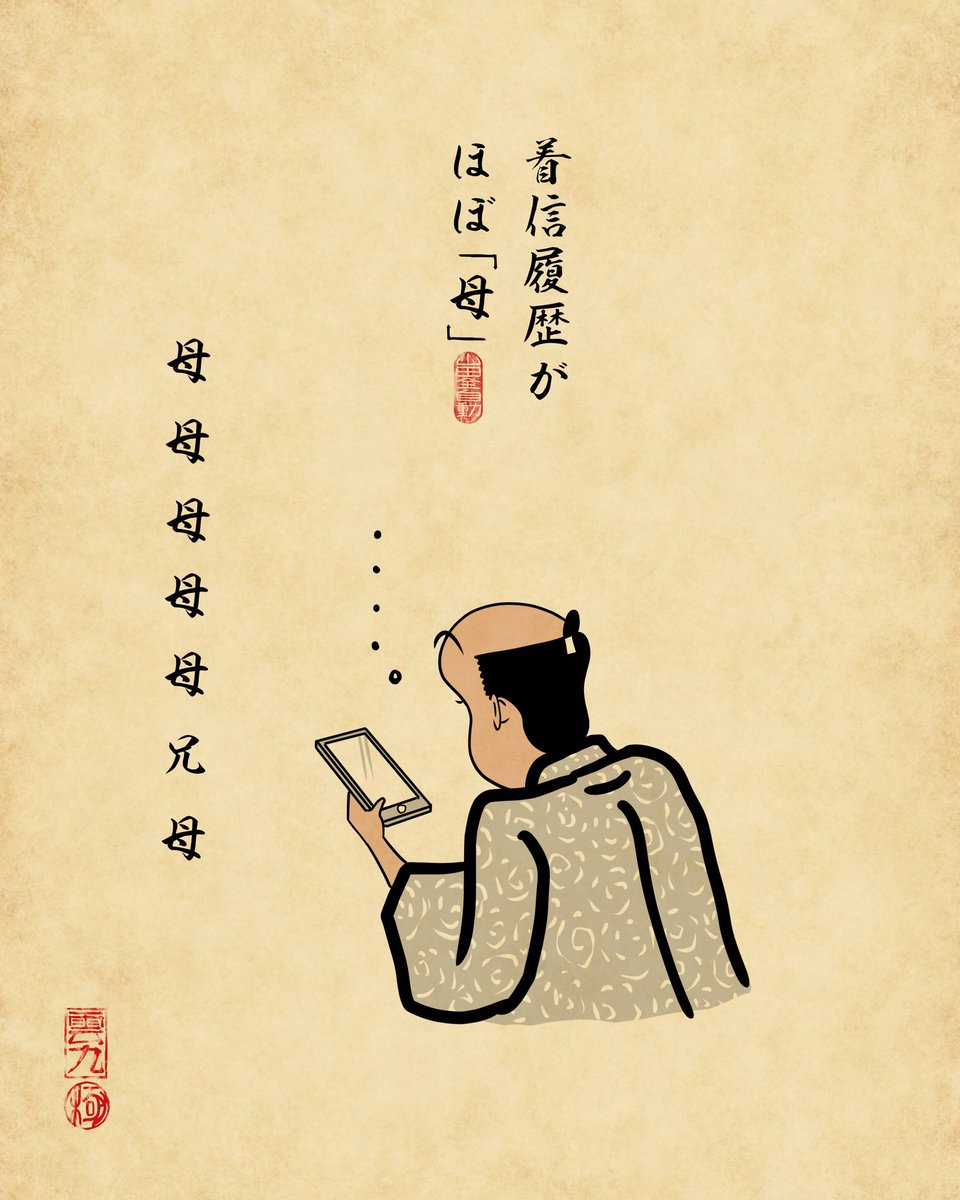 着信履歴が
ほぼ「母」
母
母
母
母
母
兄
母
雲九
極